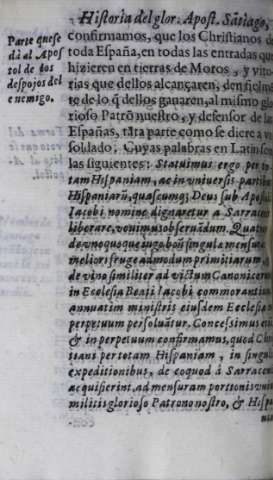 Historia del glor. Apost. Sātiago,
Parte que se
dà al Apos
tol de los
despojos del
enemigo.
confirmamos, que los Christianos de
toda España, en todas las entradas que
hizieren en tierras de Moros, y vito
rias que dellos alcançaren, den fielmē
te de lo q̄ dellos ganaren, al mismo glo
rioso Patrō nuestro, y defensor de las
Españas, tāta parte como se diere a vn
soldado; Cuyas palabras en Latin son
las siguientes: Statuimus ergo per to-
tam Hispaniam, ac in vniversis partibus
Hispaniarū, quascumq; Deus sub Apostoli
Iacobi nomine dignaretur a Sarracenis
liberare, vovimus observādum. Quatenus
de vnoquoque iugo boū singulæ mensuræ de
meliori fruge ad modum primitiarum &
de vino similiter ad victum Canonicorum
in Ecclesia Beati Iacobi commorantium
annuatim ministris eiusdem Ecclesiæ in
perpetuum persoluatur. Concessimus etiam
& in perpetuum confirmamus, quod Chris
tiani per totam Hispaniam, in singulis
expeditionibus, de eo quod à Sarracenis
acquisierint, ad mensuram portionis vnius
militis glorioso Patrono nostro, & Hispa